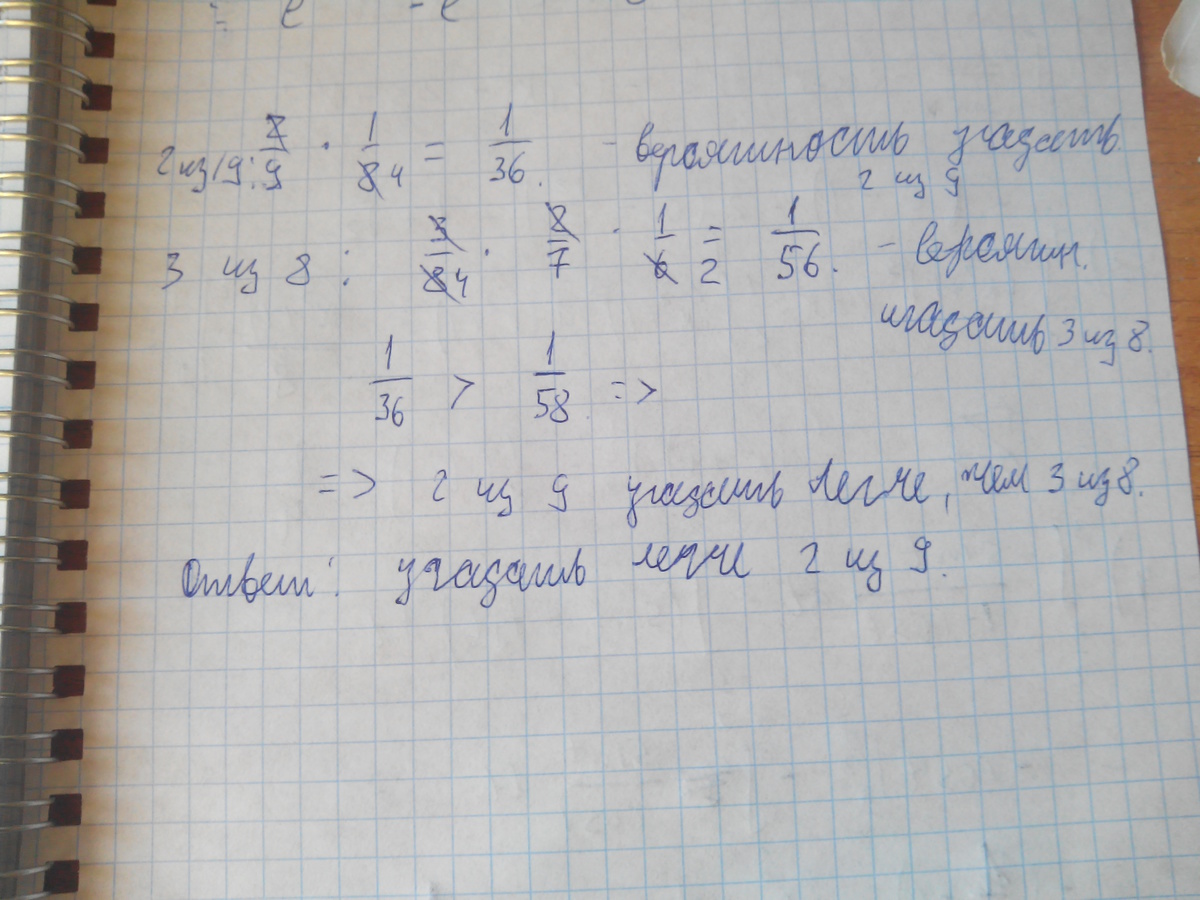 2 из 9: 2/9 · 1/8 4 = 1/36. - вероятность угадать
2 из 9
3 из 8: 3/8 4 · 2/7 · 1/6 2 = 1/56. - вероятн.
угадать 3 из 8.
1/36 > 1/58 =>
=> 2 из 9 угадать легче, чем 3 из 8.
Ответ: угадать легче 2 из 9.